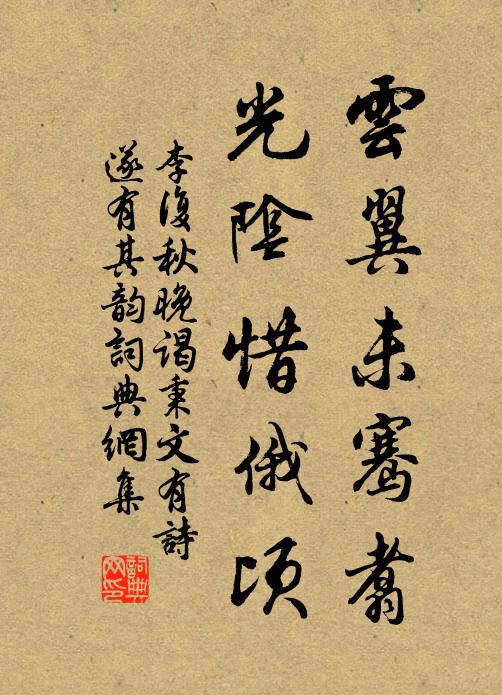 雲翼未騫翥
光陰惜俄頃
李復秋晚謁秉文有詩
遂有其韵詞典網集
詞典网印